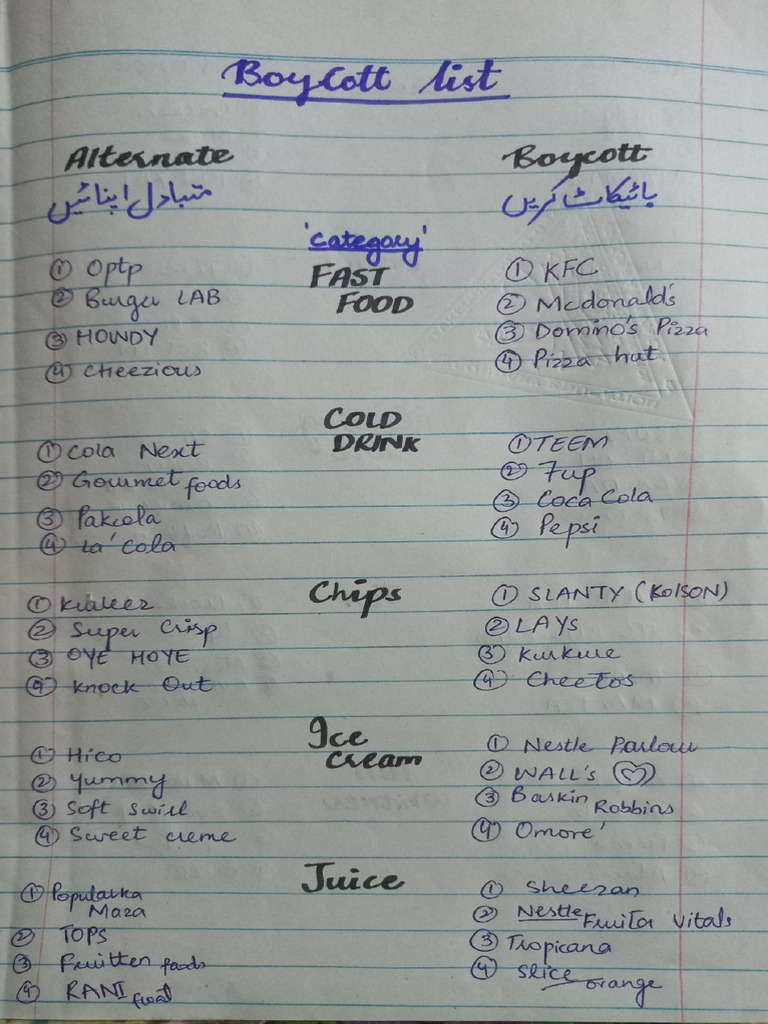 Boycott list
Alternate Boycott
متبادل اپنائیں بائیکاٹ کریں
'Category'
① Optp FAST ① KFC
② Burger LAB FOOD ② Mcdonald's
③ HOWDY ③ Domino's Pizza
④ Cheezious ④ Pizza hut
COLD
① Cola Next DRINK ① TEEM
② Gourmet foods ② 7up
③ Pakcola ③ Coca Cola
④ La'Cola ④ Pepsi
① Kraleez Chips ① SLANTY (KOLSON)
② Super Crisp ② LAYS
③ OYE HOYE ③ Kurkure
④ Knock Out ④ Cheetos
Ice
① Hico Cream ① Nestle Parlour
② Yummy ② WALL'S
③ Soft Swirl ③ Baskin Robbins
④ Sweet creme ④ Omore'
① Popular ka Juice ① Sheezan
Maza
② TOPS ② Nestle Fruita Vitals
③ Fruitten foods ③ Tropicana
④ RANI float ④ Slice orange